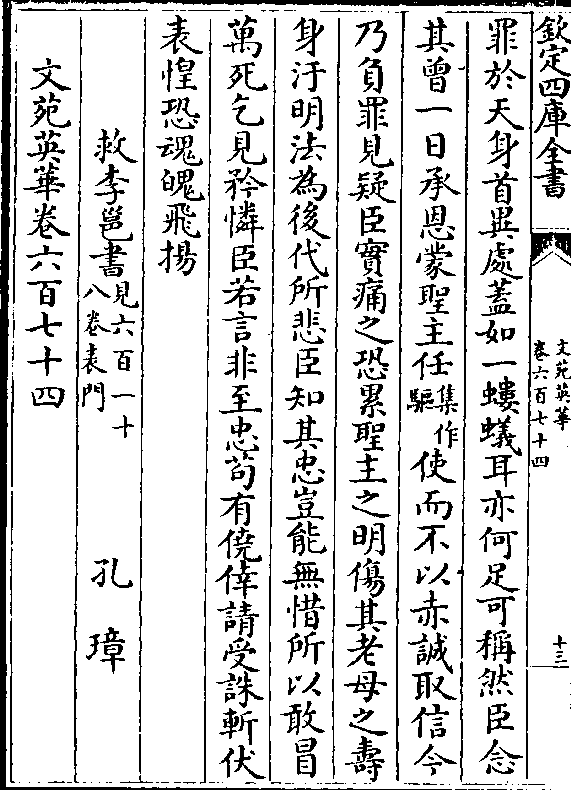 欽定四庫全書
文苑英華
卷六百七十四
十三
罪於天身首異處蓋如一螻蟻耳亦何足可稱然臣念
其曾一日承恩蒙聖主任集作驅使而不以赤誠取信今
乃負罪見疑臣實痛之恐累聖主之明傷其老母之壽
身汙明法為後代所悲臣知其忠豈能無惜所以敢冒
萬死乞見矜憐臣若言非至忠苟有僥倖請受誅斬伏
表惶恐魂魄飛揚
救李邕書見六百一十八卷表門 孔璋
文苑英華卷六百七十四